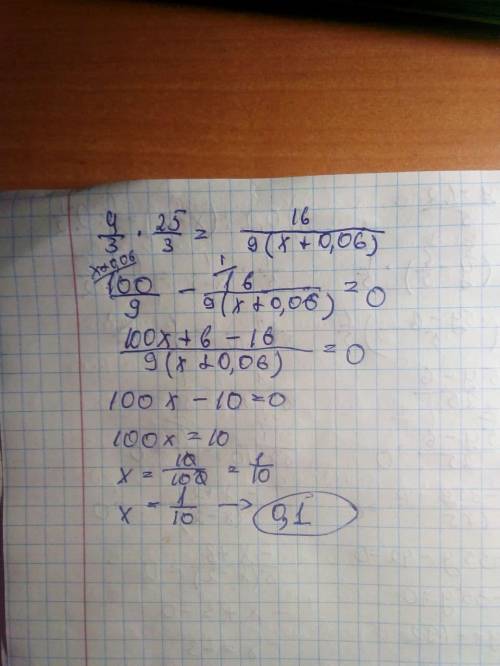 4/3 · 25/3 = 16/9(x+0,06)
x+0,06 1
100/9 - 16/9(x+0,06) = 0
100x+6-16/9(x+0,06) = 0
100x-10=0
100x=10
x = 10/100 = 1/10
x = 1/10 → 0,1